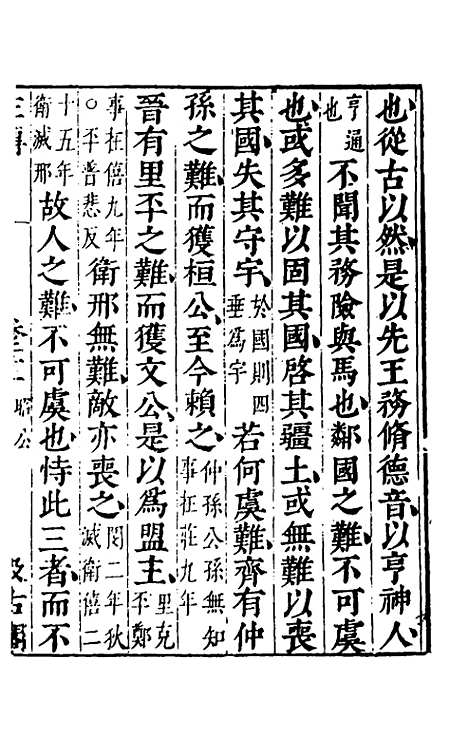 也從古以然是以先王務脩德音以亨神人
亨通也 不聞其務險與馬也鄰國之難不可虞
也或多難以固其國啓其疆土或無難以喪
其國失其守宇 於國則四垂為宇 若何虞難齊有仲
孫之難而獲桓公至今賴之 仲孫公孫無知事在莊九年
晉有里丕之難而獲文公是以為盟主 里克丕鄭
事在僖九年○丕普悲反 衛邢無難敵亦喪之 閔二年狄滅衛僖二
十五年衛滅邢 故人之難不可虞也恃此三者而不
昭公
汲古閣